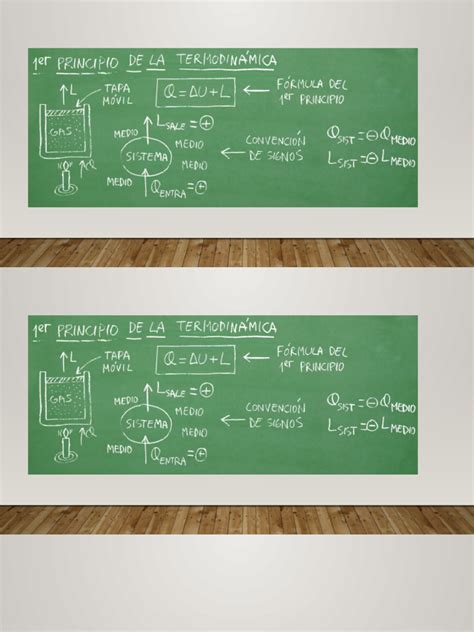 1er PRINCIPIO DE LA TERMODINÁMICA
L
TAPA MÓVIL
Q = ΔU + L
FÓRMULA DEL 1er PRINCIPIO
GAS
Q
L SALE = ⊕
MEDIO
MEDIO
SISTEMA
MEDIO
MEDIO
Q ENTRA = ⊕
CONVENCIÓN DE SIGNOS
Q SIST = ⊖ Q MEDIO
L SIST = ⊖ L MEDIO
1er PRINCIPIO DE LA TERMODINÁMICA
L
TAPA MÓVIL
Q = ΔU + L
FÓRMULA DEL 1er PRINCIPIO
GAS
Q
L SALE = ⊕
MEDIO
MEDIO
SISTEMA
MEDIO
MEDIO
Q ENTRA = ⊕
CONVENCIÓN DE SIGNOS
Q SIST = ⊖ Q MEDIO
L SIST = ⊖ L MEDIO